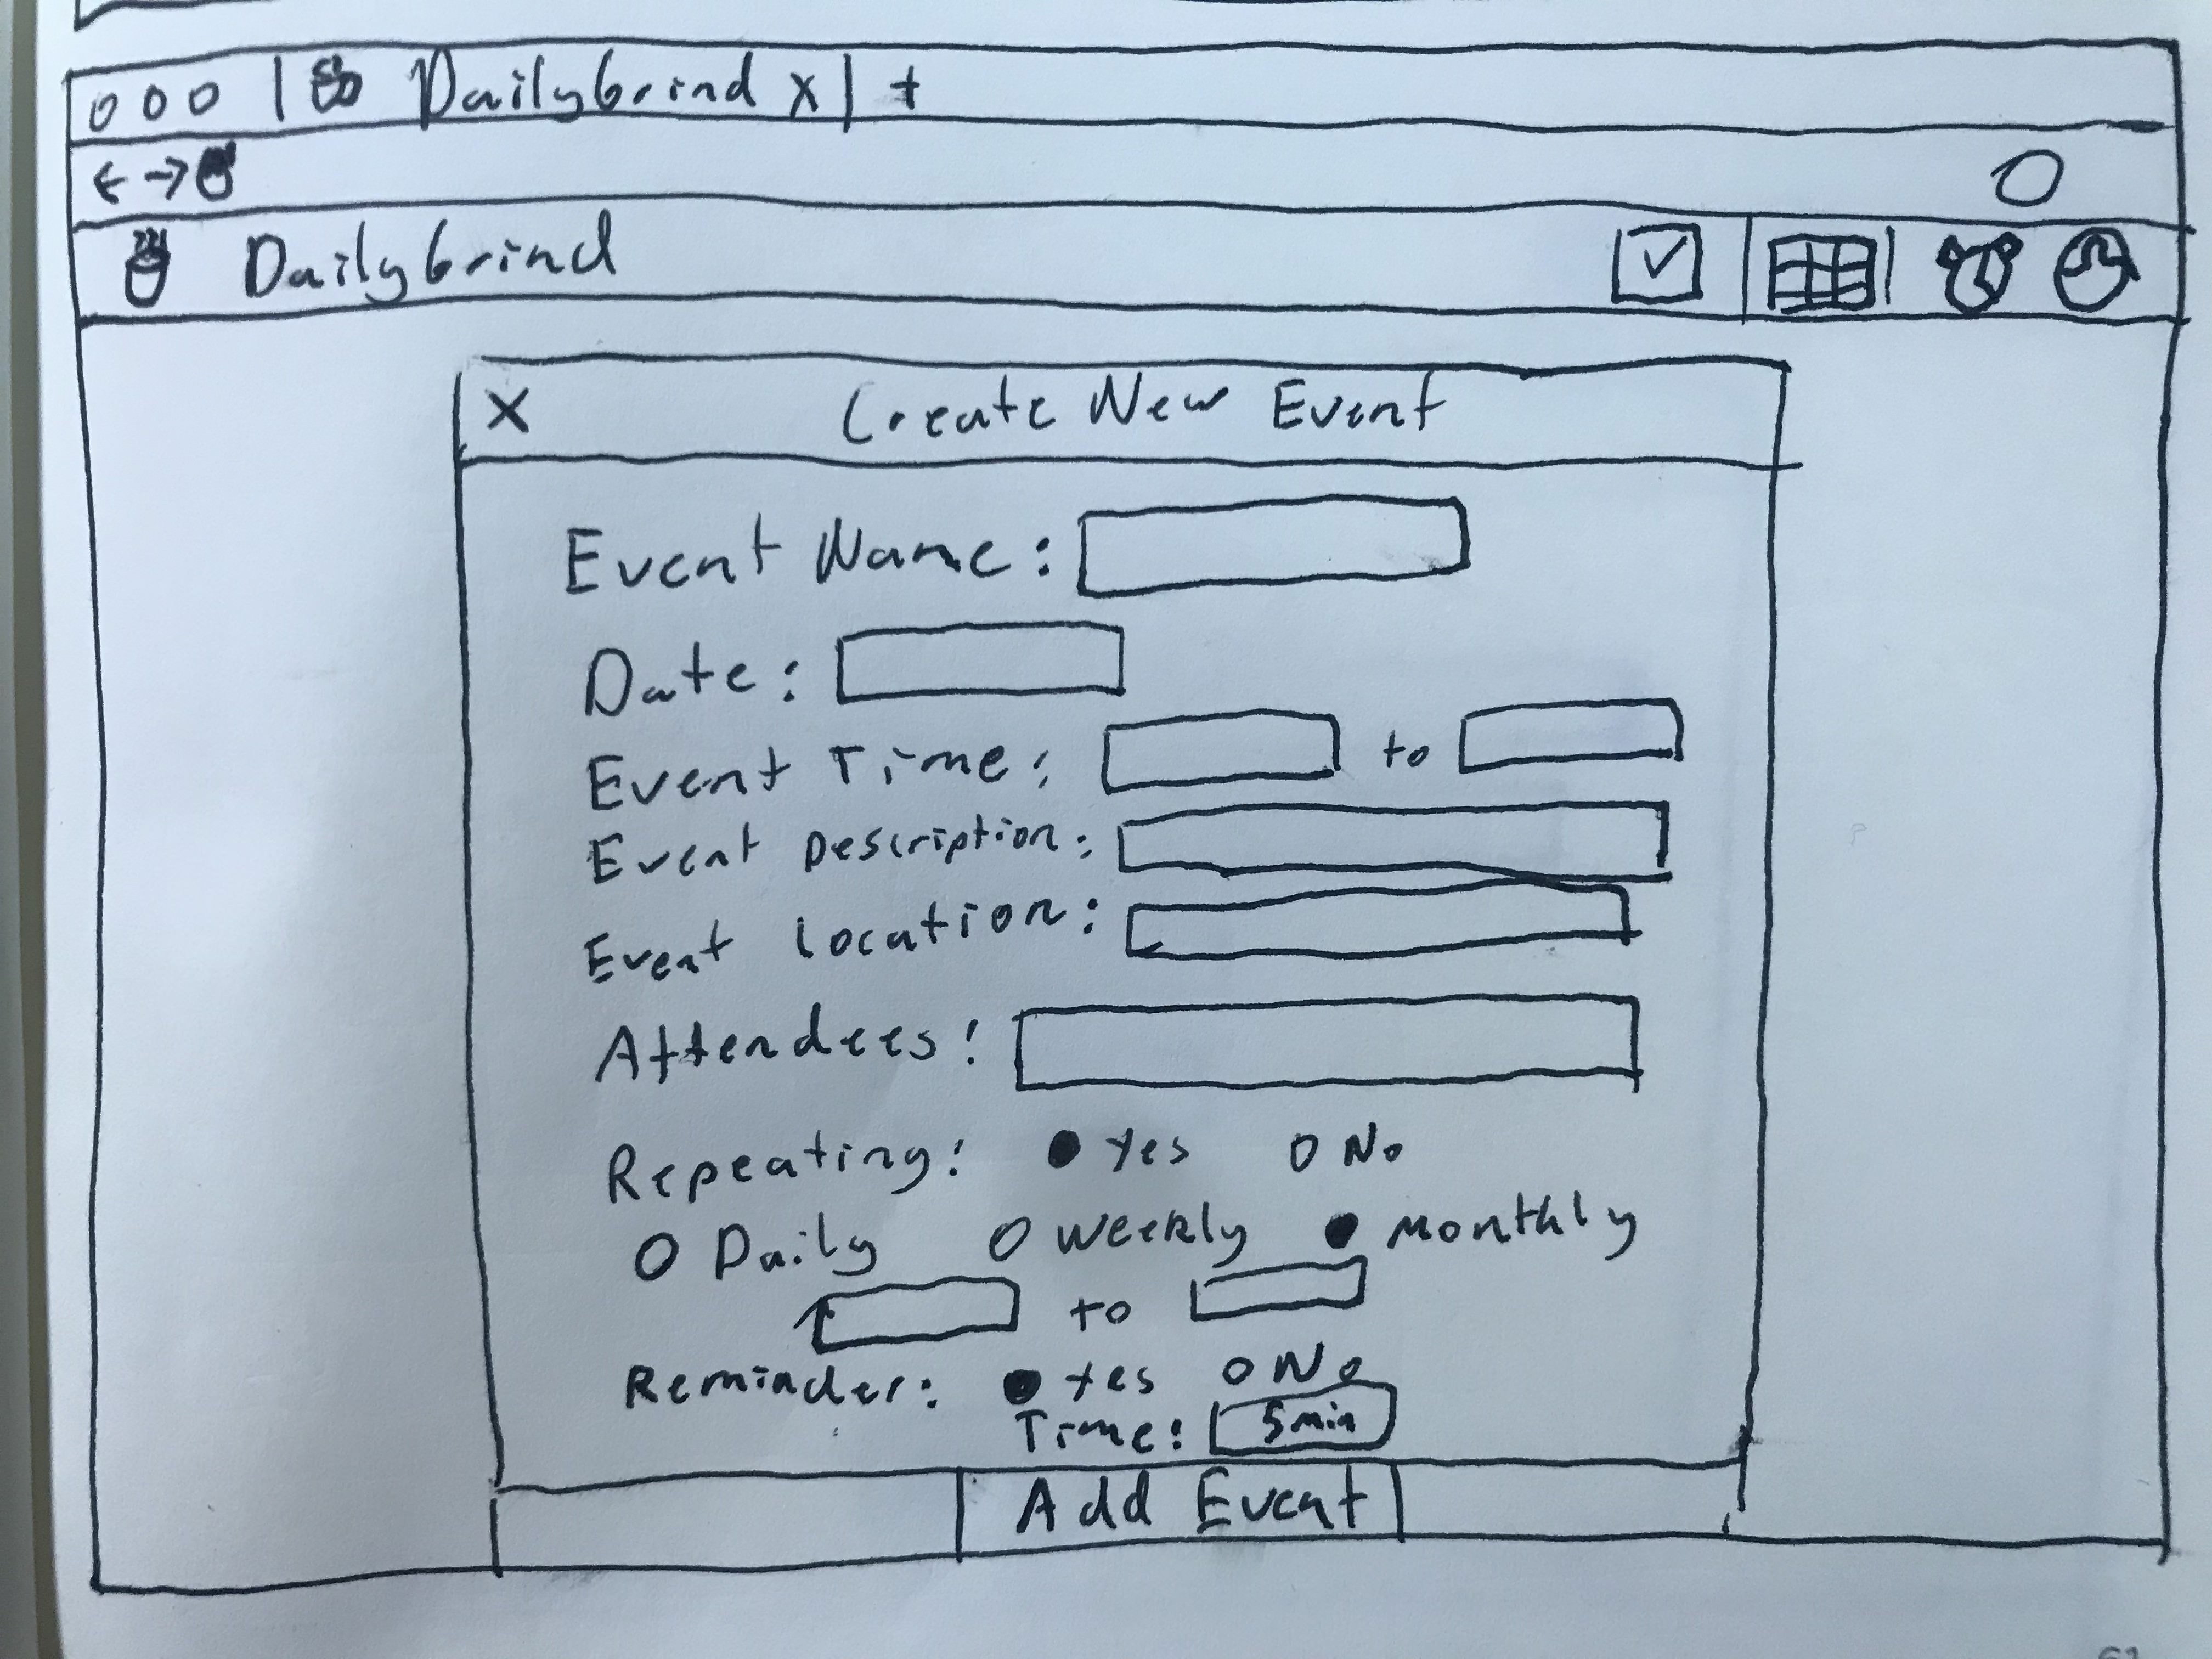 DailyGrind X +
DailyGrind
X Create New Event
Event Name:
Date:
Event Time: to
Event Description:
Event Location:
Attendees:
Repeating: Yes No
Daily Weekly Monthly
to
Reminder: Yes No
Time: 5min
Add Event